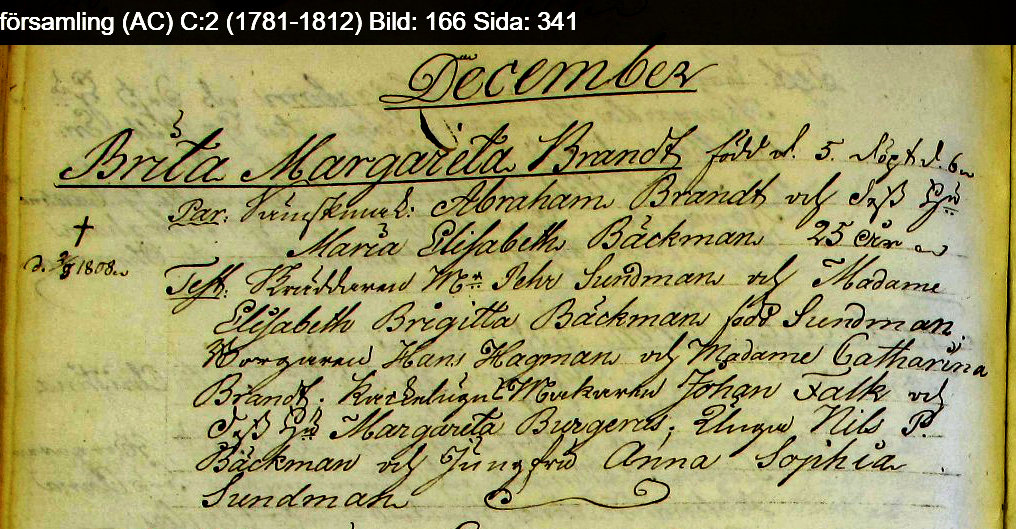 församling (AC) C:2 (1781-1812) Bild: 166 Sida: 341
December
Brita Margareta Brandt född d. 5. döpt d. 6
Par: Abraham Brandt och deß hu
Maria Elisabeth Bäckman 25 år
†
d. 1808
Test: Skräddaren Mr Pehr Sundman och Madame
Elisabeth Brigitta Bäckman född Sundman.
Borgaren Hans Hagman och Madame Catharina
Brandt. Kackelugns Makaren Johan Falk och
deß hu Margareta Burgeres; Unge Nils P.
Bäckman och Jungfru Anna Sophia
Sundman